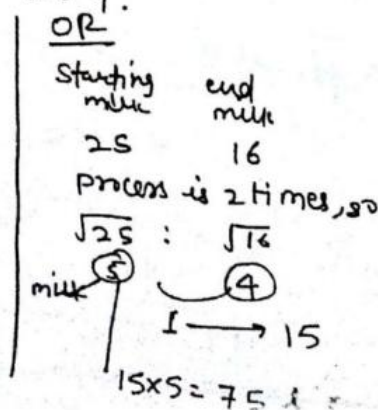 OR
Starting end
milk milk
25 16
Process is 2 times, so
√25 : √16
milk 5 4
1 → 15
15×5 = 75